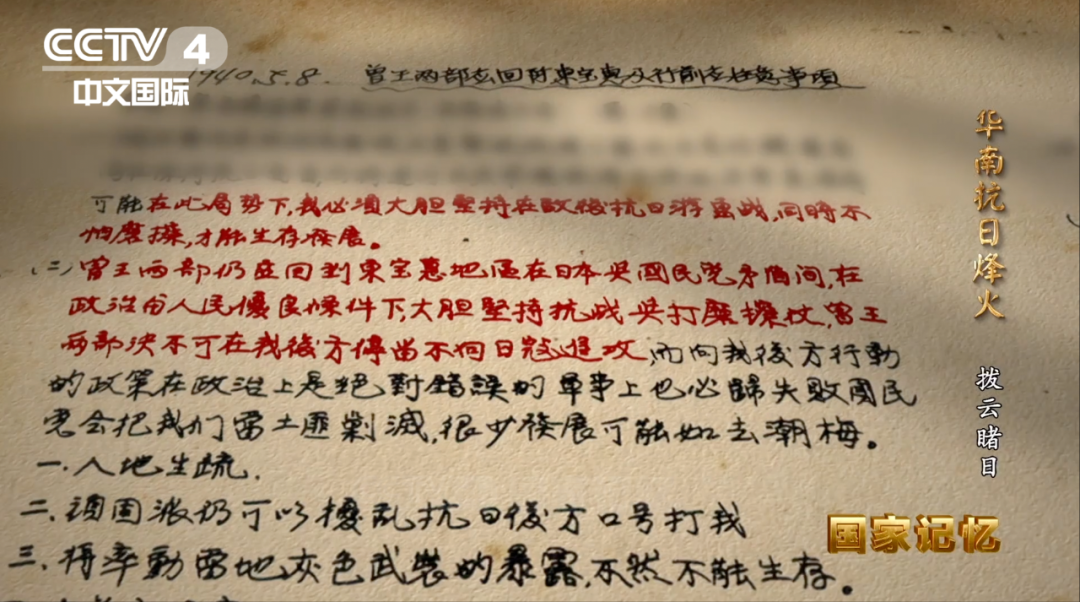 CCTV 4
中文国际
1940.5.8. 曾王两部应回防東宝惠及行前应注意事項
可能在此局势下,我必須大胆堅持在敌後抗日游击战,同時不
怕磨擦,才能生存發展。
(二)曾王两部仍应回到東宝惠地區在日本與國民党矛盾间,在
政治与人民優良條件下,大胆堅持抗战與打磨擦仗,曾王
两部決不可在我後方停留不向日寇進攻,而向我後方行動
的政策在政治上是绝對錯誤的軍事上也必歸失敗國民
党会把我们當土匪剿滅,很少發展可能如去潮梅。
一.人地生疏.
二.頑固派仍可以擾乱抗日後方口号打我
三.将牽動當地灰色武裝的暴露,不然不能生存。
华南抗日烽火
拨云睹日
国家记忆